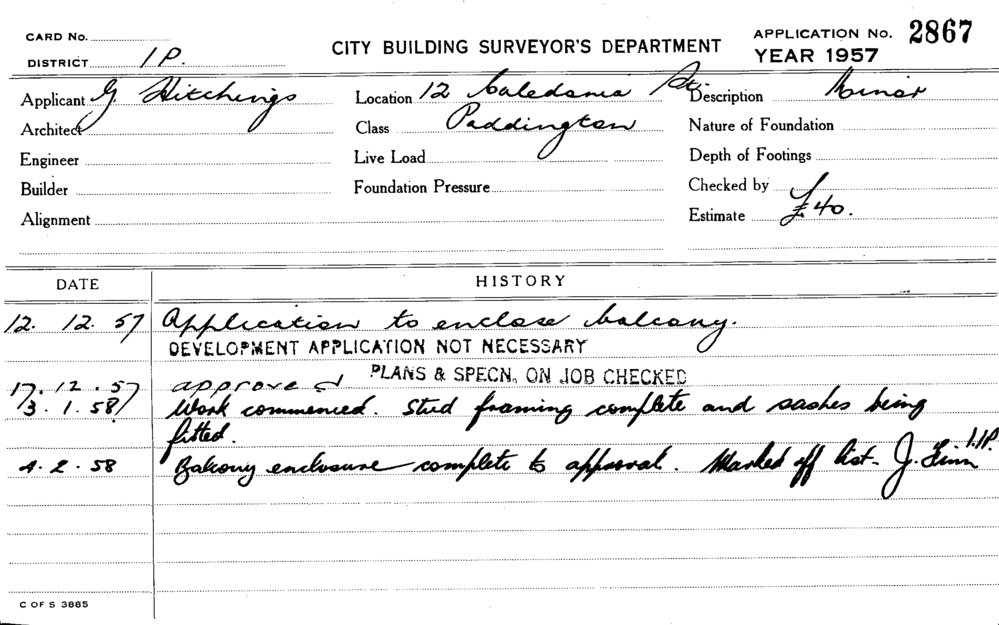 CARD No.
CITY BUILDING SURVEYOR'S DEPARTMENT
APPLICATION No. 2867
DISTRICT 1P.
YEAR 1957
Applicant G. Hitchings
Location 12 Caledonia St.
Description Minor
Architect
Class Paddington
Nature of Foundation
Engineer
Live Load
Depth of Footings
Builder
Foundation Pressure
Checked by
Alignment
Estimate £40.
DATE HISTORY
12. 12. 57 Application to enclose balcony.
DEVELOPMENT APPLICATION NOT NECESSARY
PLANS & SPECN. ON JOB CHECKED
17. 12. 57 approved
3. 1. 58 Work commenced. Stud framing complete and sashes being
fitted.
4. 2. 58 Balcony enclosure complete to approval. Marked off list - J. Finn
C OF S 3885